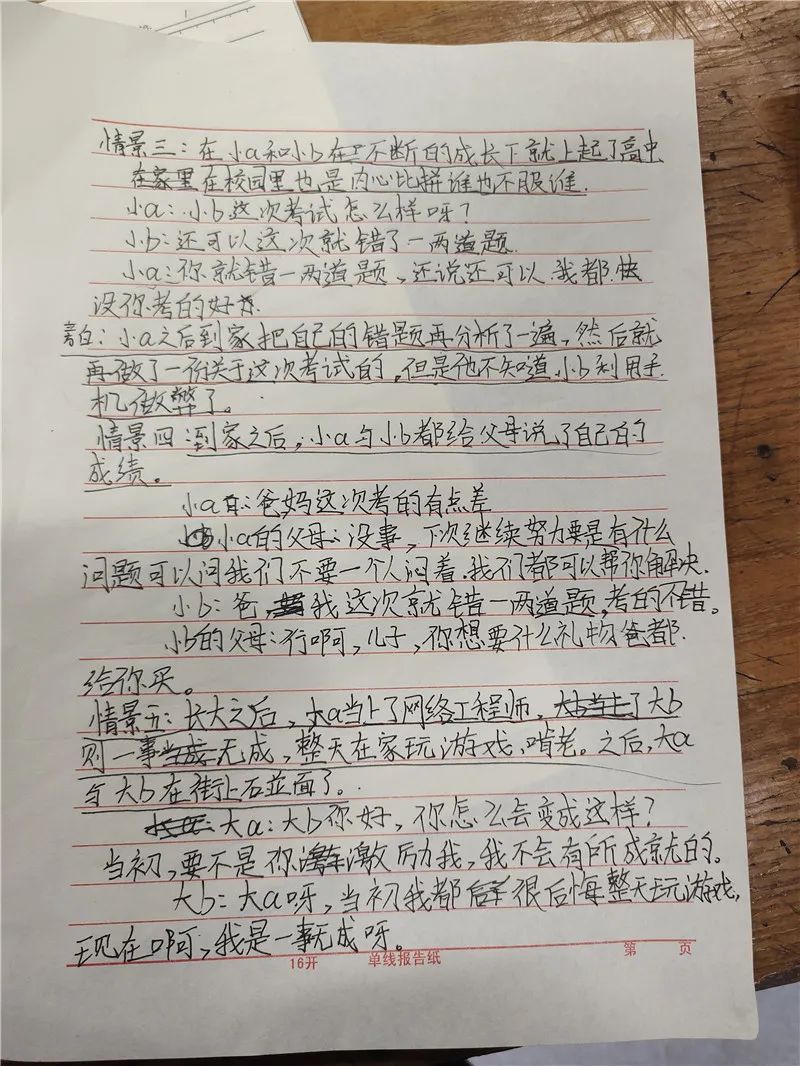 情景三：在小a和小b在不断的成长下就上起了高中
在家里在校园里也是内心比拼谁也不服谁.
小a：小b这次考试怎么样呀？
小b：还可以这次就错了一两道题.
小a：你就错一两道题，还说还可以.我都.快
没你考的好.
旁白：小a之后到家把自己的错题再分析了一遍，然后就
再做了一份关于这次考试的，但是他不知道，小b利用手
机做弊了。
情景四：到家之后，小a与小b都给父母说了自己的
成绩。
小a：爸妈这次考的有点差
小a的父母：没事，下次继续努力要是有什么
问题可以问我们不要一个人闷着.我们都可以帮你解决.
小b：爸，我这次就错一两道题，考的不错。
小b的父母：行啊，儿子，你想要什么礼物爸都.
给你买。
情景五：长大之后，大a当上了网络工程师，大b
则一事无成，整天在家玩游戏，啃老。之后，大a
与大b在街上石並面了.
大a：大b你好，你怎么会变成这样？
当初，要不是你激励我，我不会有所成就的。
大b：大a呀，当初我都很后悔整天玩游戏，
现在啊，我是一事无成呀。
16开 单线报告纸 第 页